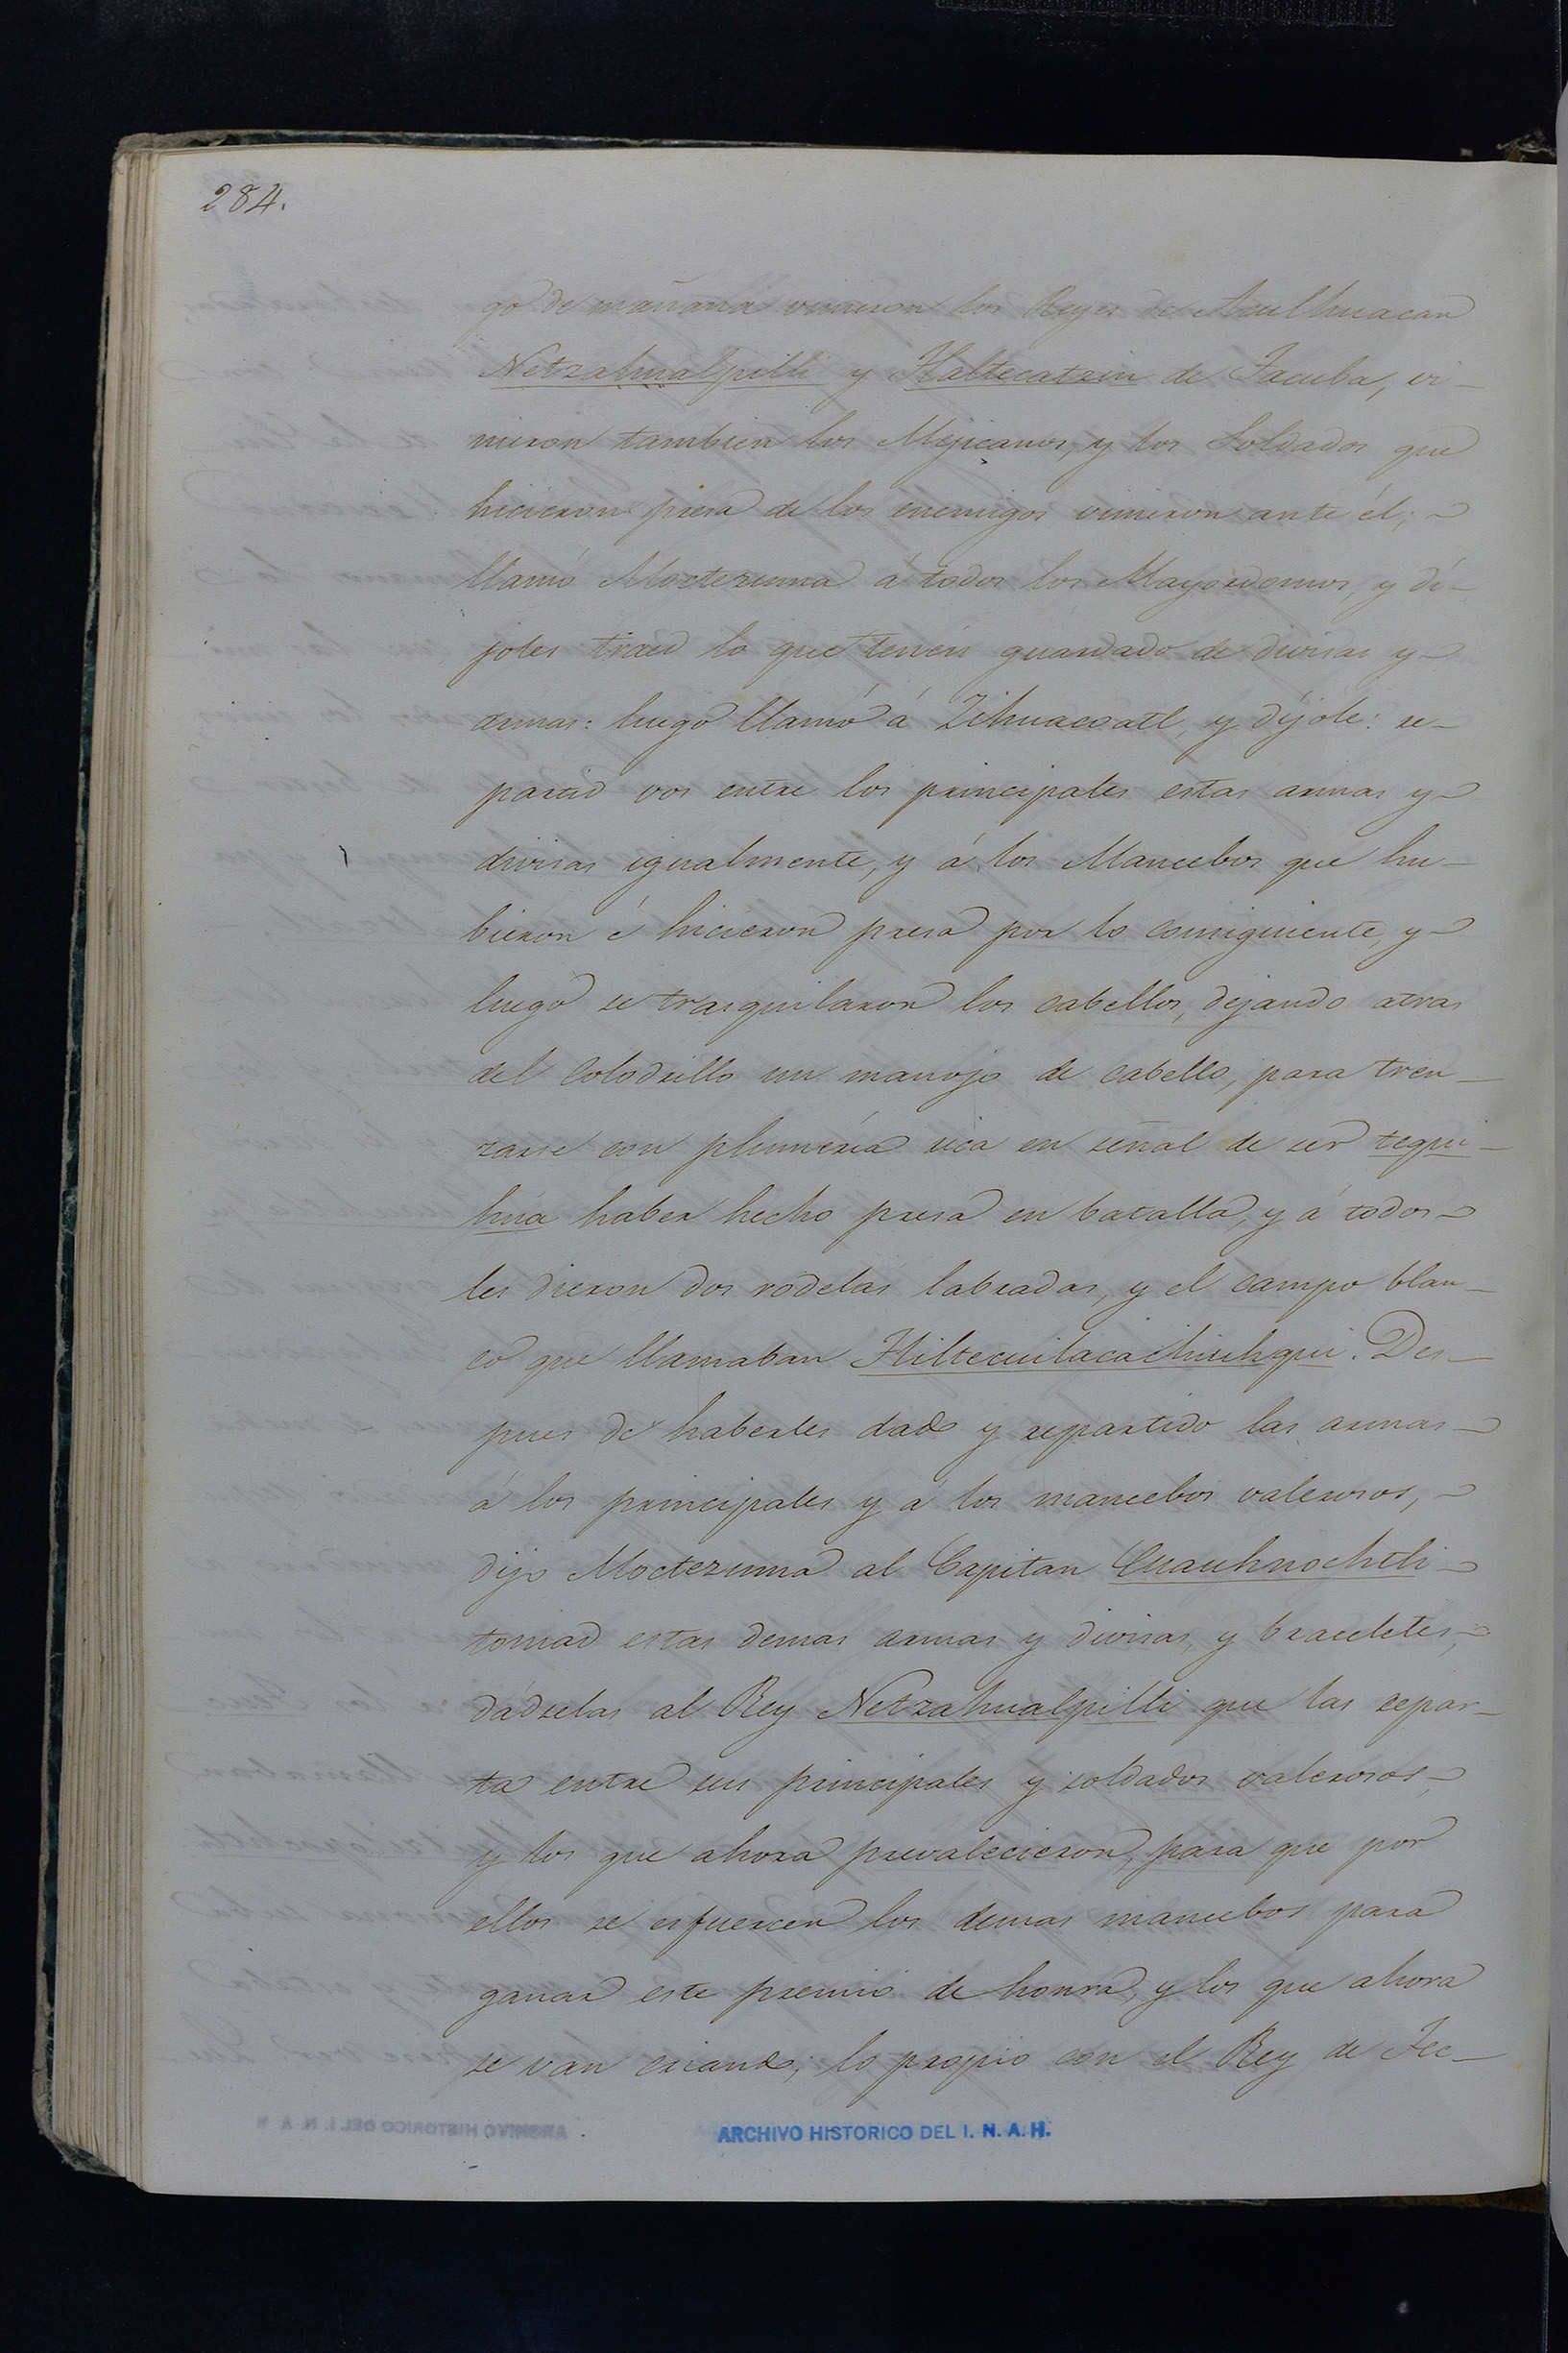 284.
go de mañana vinieron los Reyes de Aculhuacan
Netzahualpilli y Tlaltecatzin de Tacuba, vi-
nieron tambien los Mejicanos, y los Soldados que
hicieron presa de los enemigos vinieron ante él;
llamó Moctezuma á todos los Mayordomos, y dí-
joles traed lo que teneis guardado de divisas y
armas: luego llamó á Zihuacoatl, y díjole: re-
partid vos entre los principales estas armas y
divisas igualmente, y á los Mancebos que hu-
bieron é hicieron presa por lo consiguiente, y
luego se trasquilaron los cabellos, dejando atras
del Colodrillo un manojo de cabello, para tren-
zarse con plumería rica en señal de ser tequi-
húa haber hecho presa en batalla, y á todos
les dieron dos rodelas labradas, y el campo blan-
co que llamaban Tliltecuilacachiuhqui. Des-
pues de haberles dado y repartido las armas
á los principales y á los mancebos valerosos,
dijo Moctezuma al Capitan Cuauhnochtli
tomad estas demas armas y divisas, y braceletes,
dádselas al Rey Netzahualpilli que las repar-
ta entre sus principales y soldados valerosos,
y los que ahora prevalecieron, para que por
ellos se esfuercen los demas mancebos para
ganar este premio de honra, y los que ahora
se van criando; lo propio con el Rey de Tec-
ARCHIVO HISTORICO DEL I. N. A. H.